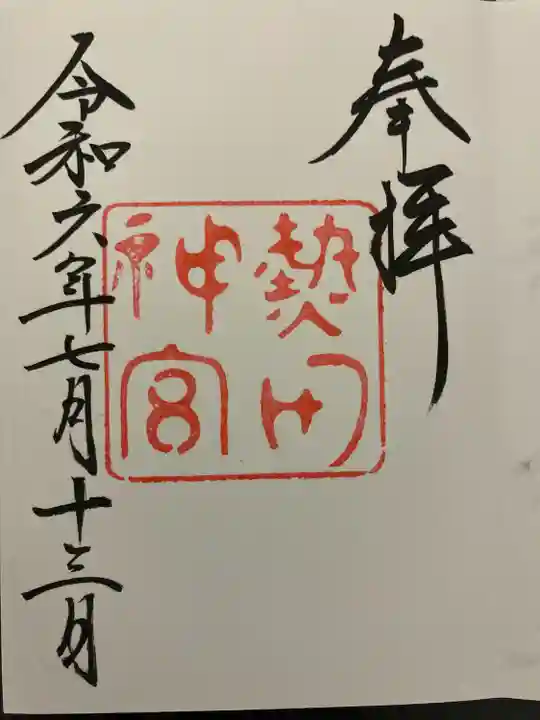 奉拝
熱田
神宮
令和六年七月十三日